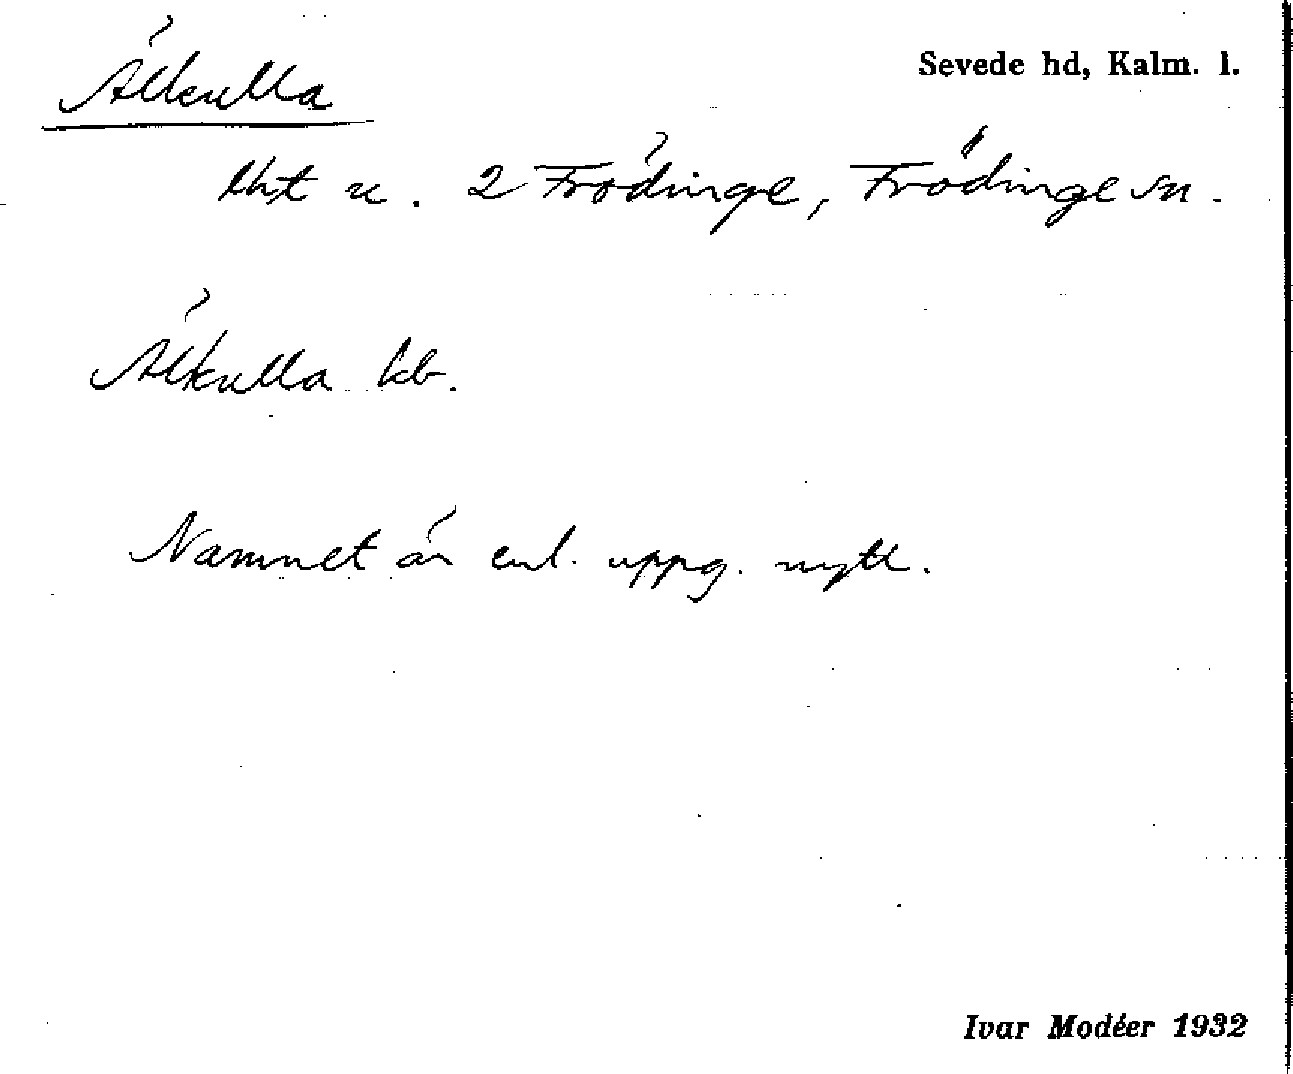 Älkulla
Sevede hd, Kalm. l.
lht u. 2 Frödinge, Frödinge sn.
Älkulla kb.
Namnet är enl. uppg. nytt.
Ivar Modéer 1932